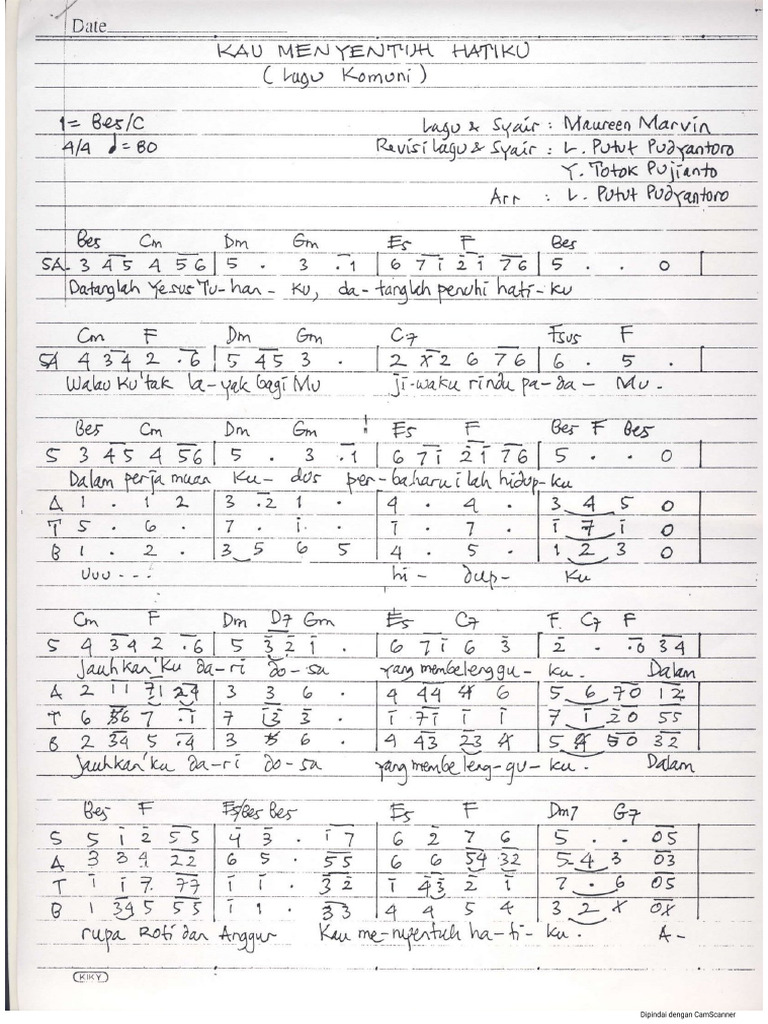 Date
KAU MENYENTUH HATIKU
(Lagu Komuni)
1= Bes/C
Lagu & Syair : Maureen Marvin
4/4 ♩= 80
Revisi Lagu & Syair : L. Putut Pudyantoro
Y. Totok Pujianto
Arr : L. Putut Pudyantoro
Bes Cm Dm Gm Es F Bes
SA 3 45 4 56 | 5 . 3 .1 | 6 71 21 76 | 5 . . 0 |
Datanglah Yesus Tu-han-ku, da-tanglah penuhi hati-ku
Cm F Dm Gm C7 Fsus F
SA 4 34 2 .6 | 5 45 3 . | 2 x2 6 76 | 6 . 5 . |
Walau Ku'tak la-yak bagi Mu ji-waku rindu pa-da-Mu.
Bes Cm Dm Gm Es F Bes F Bes
S 3 45 4 56 | 5 . 3 .1 | 6 71 21 76 | 5 . . 0 |
Dalam perja muan Ku-dus per-baharui lah hidup-ku
A 1 . 1 2 | 3 .2 1 . | 4 . 4 . | 3 4 5 0 |
T 5 . 6 . | 7 . 1 . | 1 . 7 . | 1 7 1 0 |
B 1 . 2 . | 3 5 6 5 | 4 . 5 . | 1 2 3 0 |
Uuu--- hi-dup-Ku
Cm F Dm D7 Gm Es C7 F C7 F
S 4 34 2 .6 | 5 32 1 . | 6 71 6 3 | 2 . .0 34 |
Jauhkan'Ku da-ri do-sa yang membelenggu-ku. Dalam
A 2 11 71 24 | 3 3 6 . | 4 44 4 6 | 5 6 70 12 |
T 6 56 7 .1 | 7 13 3 . | 1 71 1 1 | 7 1 20 55 |
B 2 34 5 .4 | 3 5 6 . | 4 43 23 4 | 5 4 50 32 |
Jauhkan'ku da-ri do-sa yang membeleng-gu-ku. Dalam
Bes F Es/Bes Bes Es F Dm7 G7
S 5 1 2 55 | 4 3 . 17 | 6 2 7 6 | 5 . . 05 |
A 3 34 22 | 6 5 . 55 | 6 6 54 32 | 5 4 3 03 |
T 1 17. 77 | 1 1 . 32 | 1 43 2 1 | 7 . 6 05 |
B 1 345 55 | 1 1 . 33 | 4 4 5 4 | 3 2 x 0x |
rupa Roti dan Anggur Kau me-nyentuh ha-ti-Ku. A-
KIKY
Dipindai dengan CamScanner